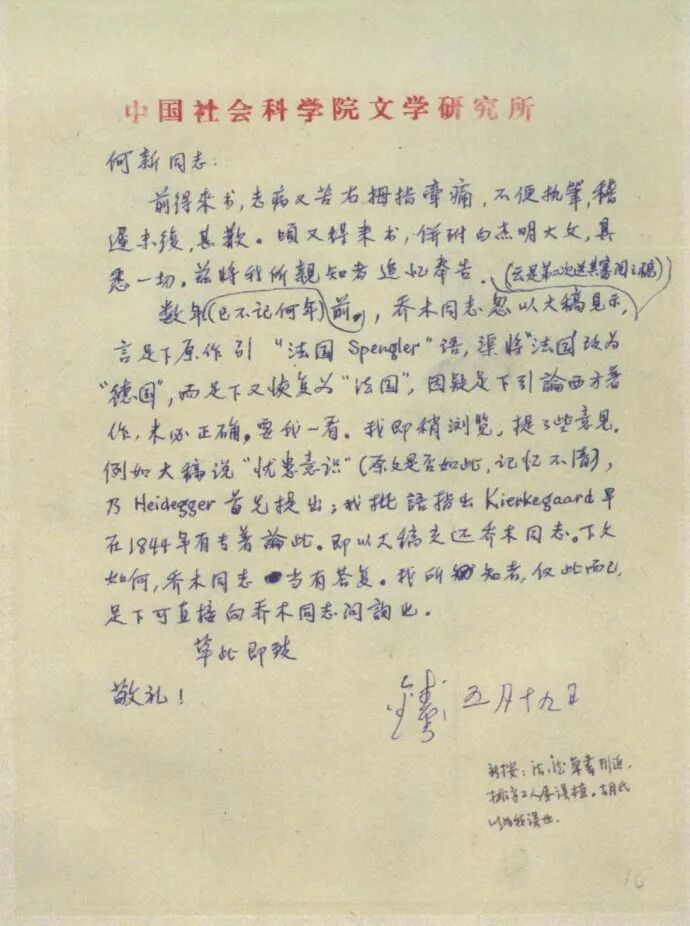 中国社会科学院文学研究所
何新同志：
前得来书，老病又苦右拇指牵痛，不便执笔，稽
迟未复，甚歉。顷又得来书，併附白杰明大文，具
悉一切。兹将我所亲知者追忆奉告。
（云是第二次送其审阅之稿）
数年（已不记何年）前，乔木同志忽以大稿见示，
言足下原作引“法国Spengler”语，渠将“法国”改为
“德国”，而足下又恢复为“法国”，因疑足下引论西方著
作，未必正确。要我一看。我即稍浏览，提了些意见。
例如大稿说“忧患意识”（原文是否如此，记忆不清），
乃Heidegger首先提出；我批语指出Kierkegaard早
在1844年有专著论此。即以大稿交还乔木同志。下文
如何，乔木同志当有答复。我所知者，仅此而已，
足下可直接向乔木同志询问也。
草此即致
敬礼！
五月十九日
新按：法、德草书形近，
排字工人屡误植。胡氏
以为我误也。
16